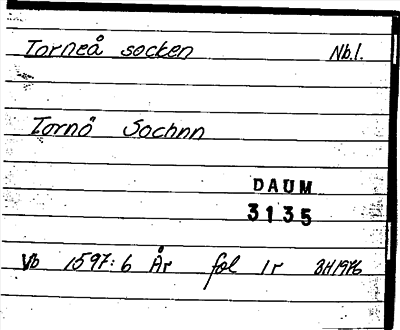 Torneå socken Nb.l.
Tornö Sochnn
DAUM
3135
Vb 1597:6 År fol 1r 3H1976